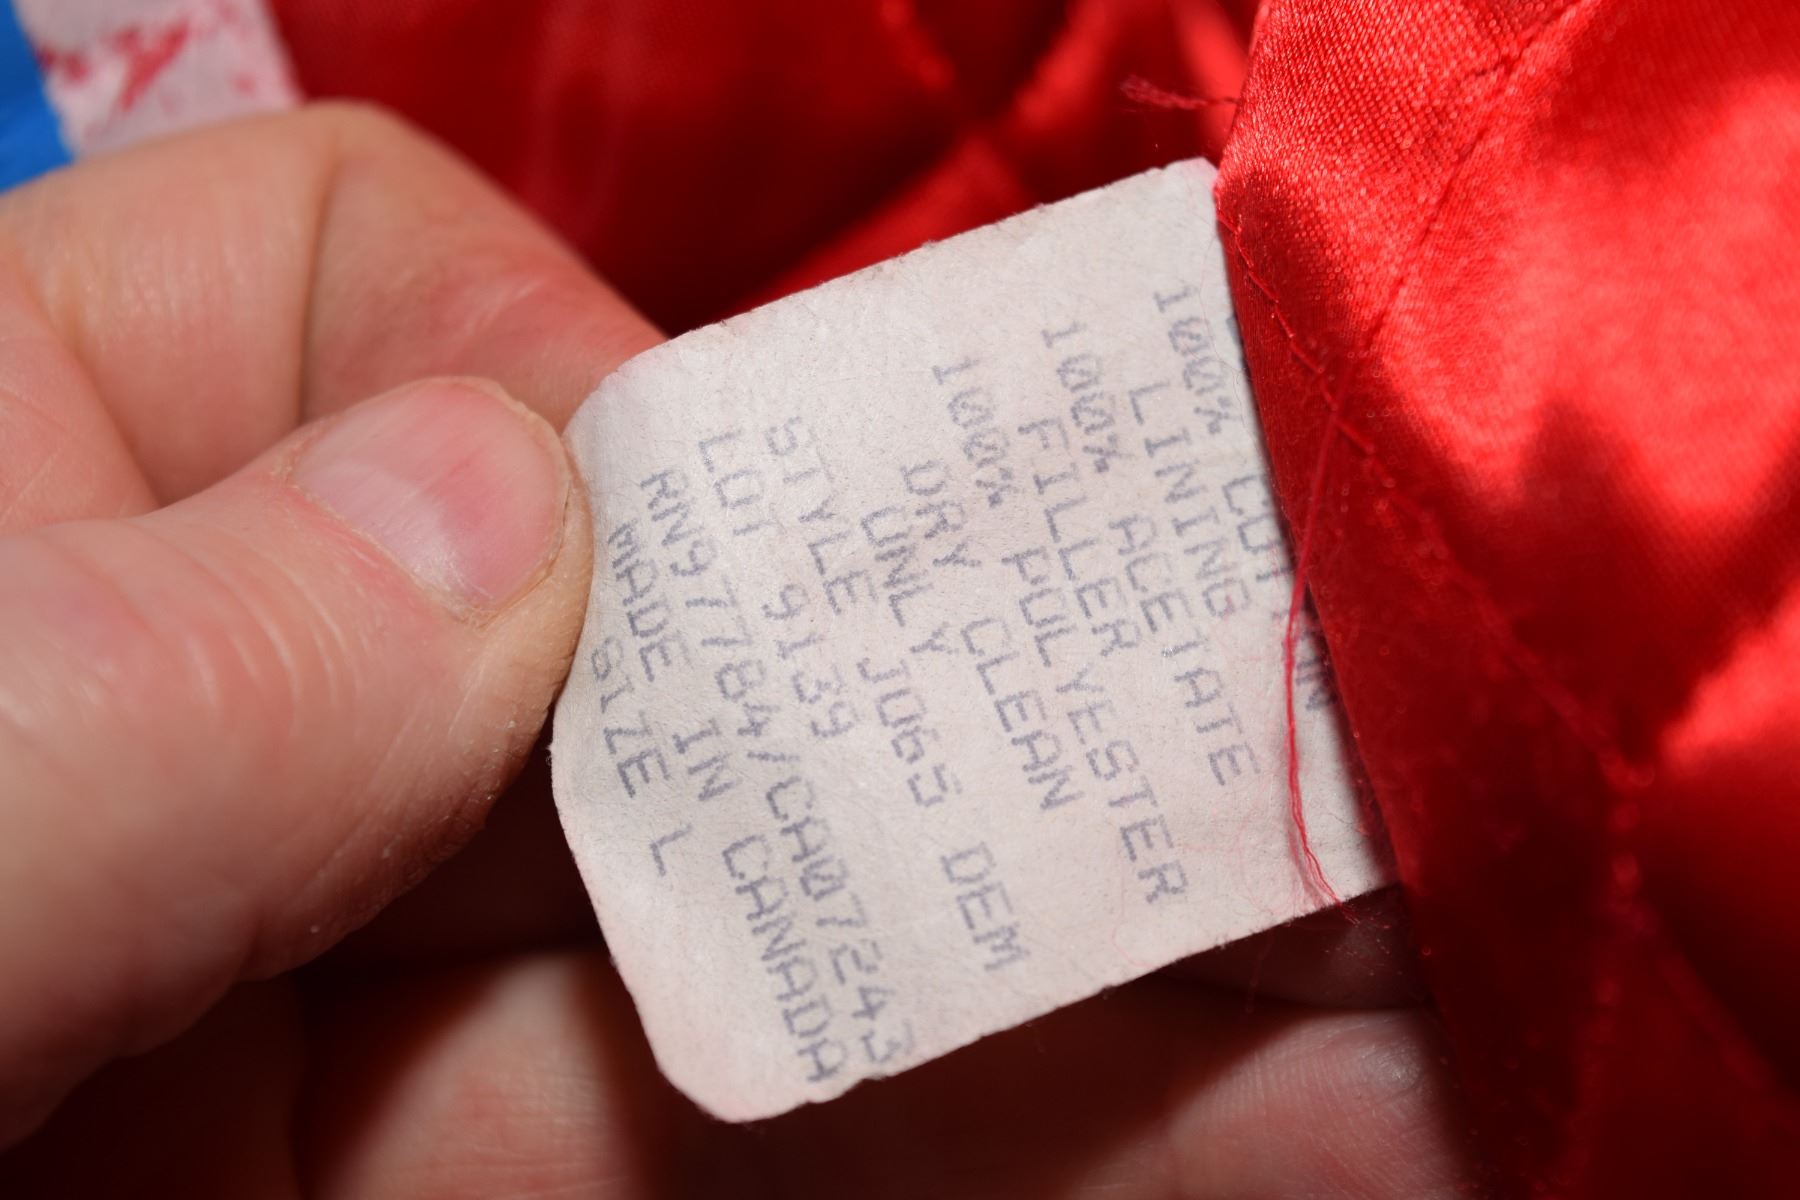 100% COTTON
LINING
100% ACETATE
FILLER
100% POLYESTER
DRY CLEAN
ONLY
STYLE J065 DEM
LOT 9139
RN97784/CA07243
MADE IN CANADA
SIZE L